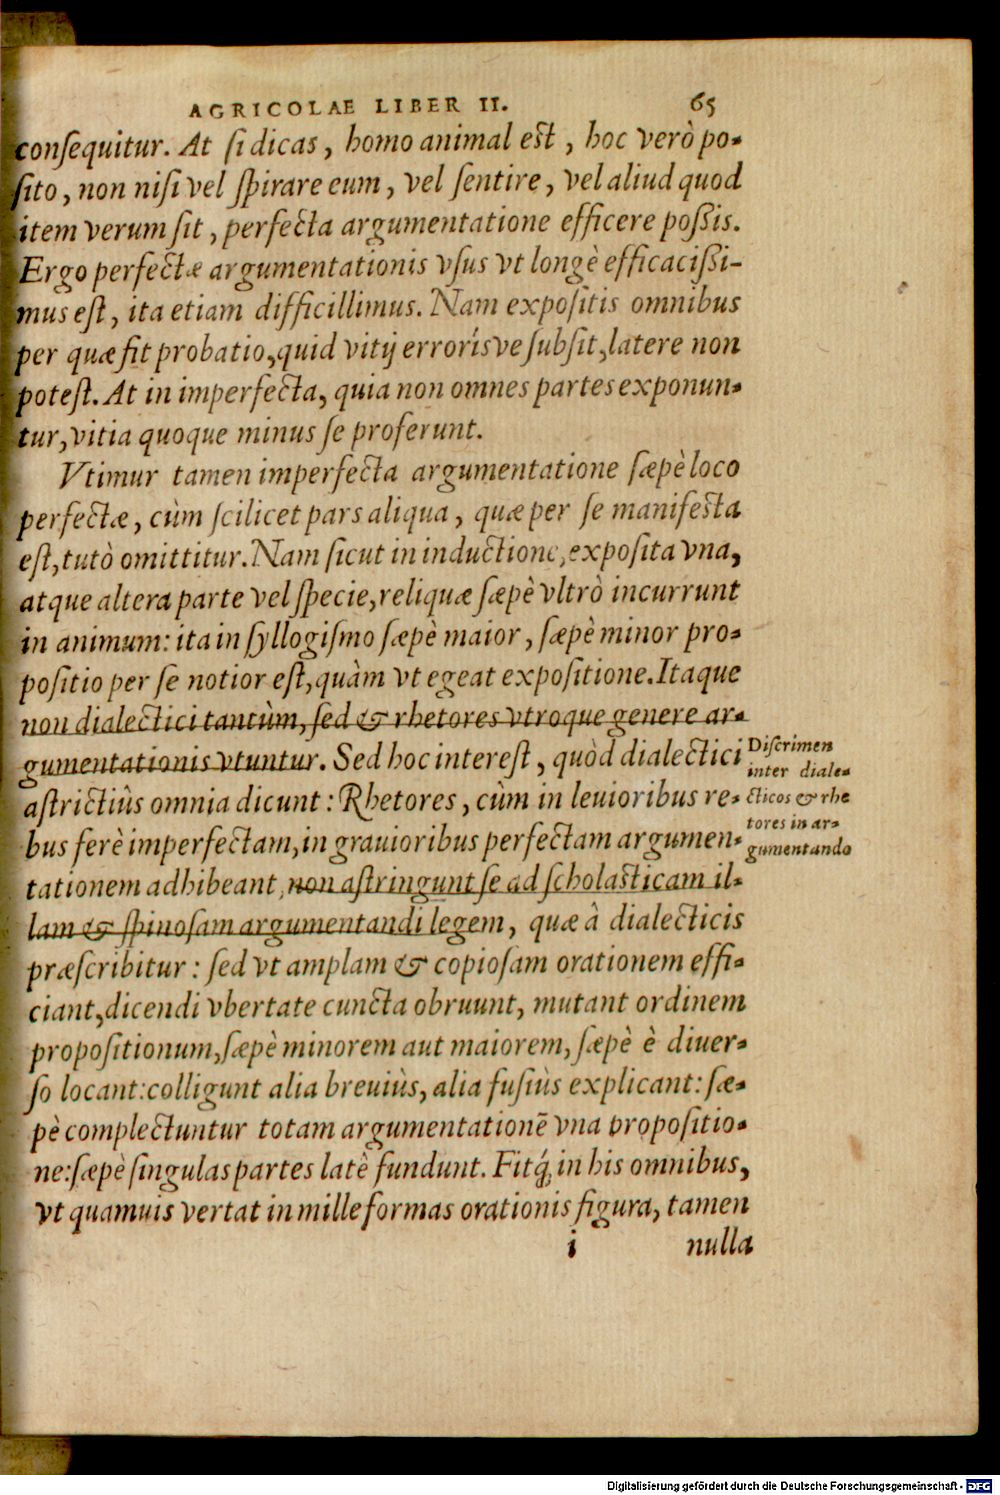 AGRICOLAE LIBER II. 65
consequitur. At si dicas, homo animal est, hoc verò po-
sito, non nisi vel spirare eum, vel sentire, vel aliud quod
item verum sit, perfecta argumentatione efficere possis.
Ergo perfectæ argumentationis vsus vt longè efficacissi-
mus est, ita etiam difficillimus. Nam expositis omnibus
per quæ fit probatio, quid vitij errorísve subsit, latere non
potest. At in imperfecta, quia non omnes partes exponun-
tur, vitia quoque minus se proferunt.
Vtimur tamen imperfecta argumentatione sæpè loco
perfectæ, cùm scilicet pars aliqua, quæ per se manifesta
est, tutò omittitur. Nam sicut in inductione, exposita vna,
atque altera parte vel specie, reliquæ sæpè vltrò incurrunt
in animum: ita in syllogismo sæpè maior, sæpè minor pro-
positio per se notior est, quàm vt egeat expositione. Itaque
non dialectici tantùm, sed & rhetores vtroque genere ar-
gumentationis vtuntur. Sed hoc interest, quòd dialectici
astrictiùs omnia dicunt: Rhetores, cùm in leuioribus re-
bus ferè imperfectam, in grauioribus perfectam argumen-
tationem adhibeant, non astringunt se ad scholasticam il-
lam & spinosam argumentandi legem, quæ à dialecticis
præscribitur: sed vt amplam & copiosam orationem effi-
ciant, dicendi vbertate cuncta obruunt, mutant ordinem
propositionum, sæpè minorem aut maiorem, sæpè è diuer-
so locant: colligunt alia breuiùs, alia fusiùs explicant: sæ-
pè complectuntur totam argumentationē vna propositio-
ne: sæpè singulas partes latè fundunt. Fitq́; in his omnibus,
vt quamuis vertat in mille formas orationis figura, tamen
i nulla
Discrimen
inter diale-
cticos & rhe
tores in ar-
gumentando
Digitalisierung gefördert durch die Deutsche Forschungsgemeinschaft - DFG